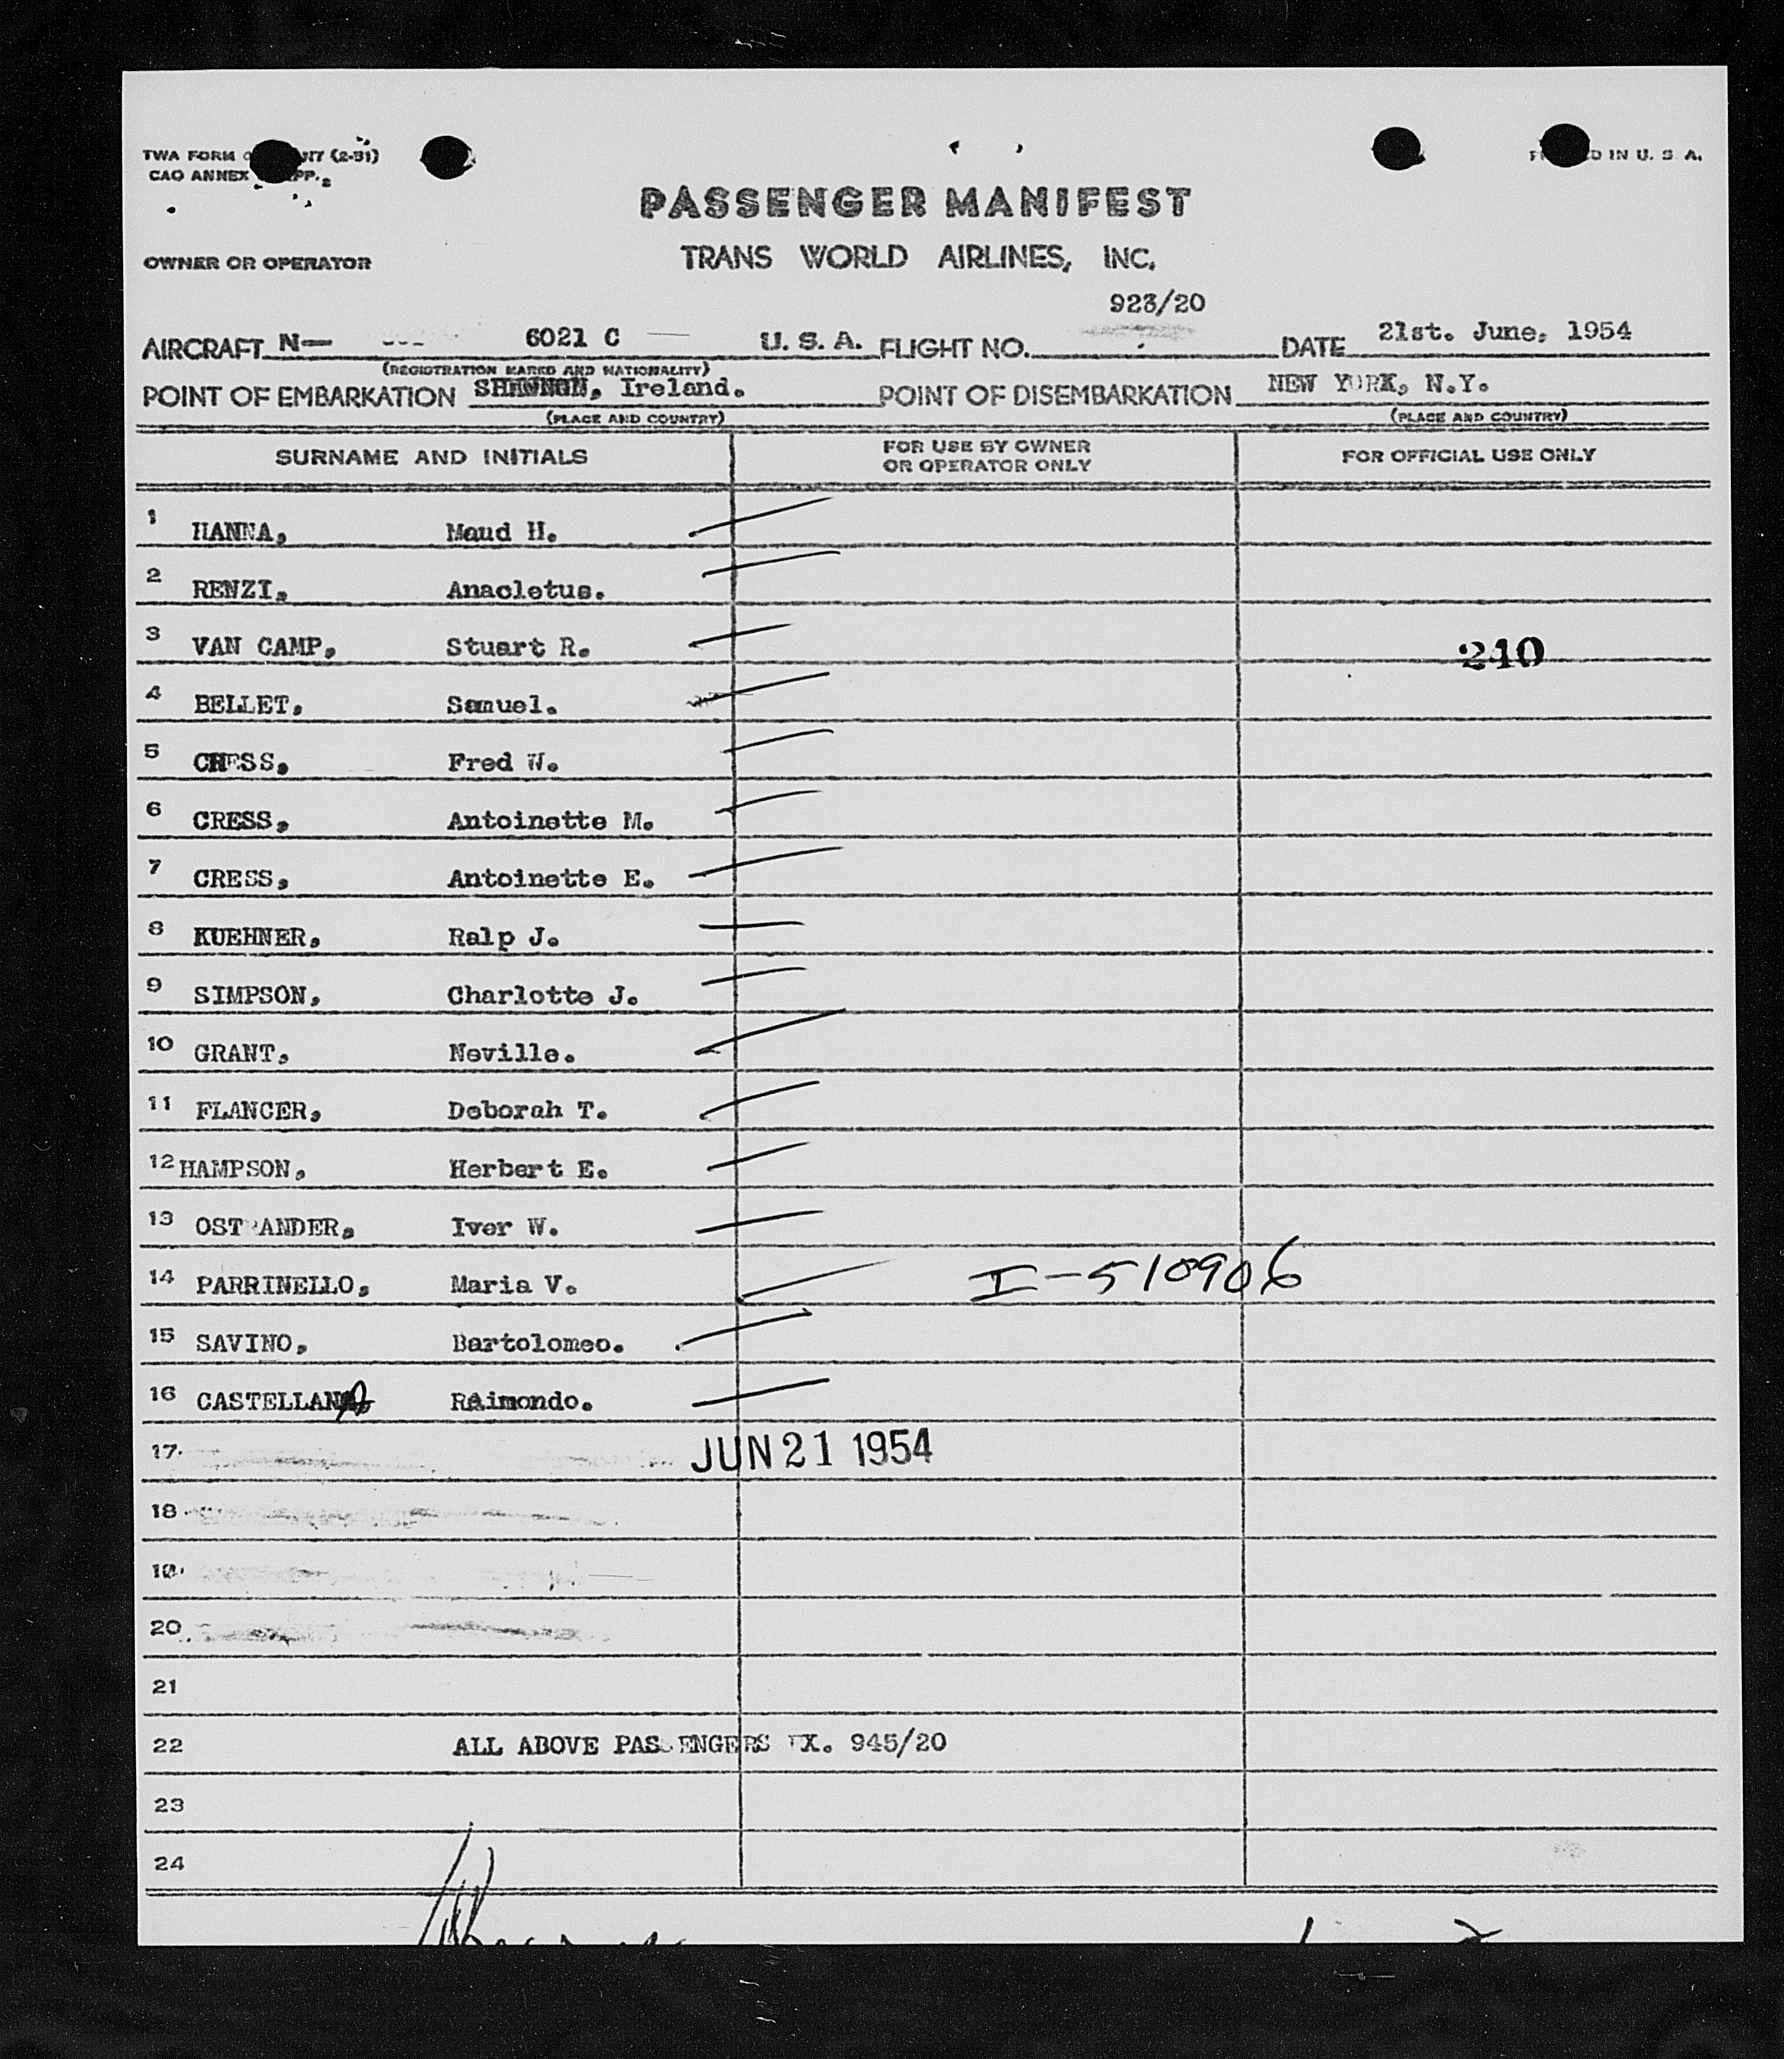 TWA FORM (2-51)
CAO ANNEX PP. 2
IN U. S. A.
PASSENGER MANIFEST
OWNER OR OPERATOR
TRANS WORLD AIRLINES, INC.
923/20
AIRCRAFT N— 6021 C U. S. A. FLIGHT NO. DATE 21st. June, 1954
(REGISTRATION MARKS AND NATIONALITY)
POINT OF EMBARKATION SHANNON, Ireland. POINT OF DISEMBARKATION NEW YORK, N.Y.
(PLACE AND COUNTRY) (PLACE AND COUNTRY)
SURNAME AND INITIALS FOR USE BY OWNER OR OPERATOR ONLY FOR OFFICIAL USE ONLY
1 HANNA, Maud H.
2 RENZI, Anacletus.
3 VAN CAMP, Stuart R. 240
4 BELLET, Samuel.
5 CRESS, Fred W.
6 CRESS, Antoinette M.
7 CRESS, Antoinette E.
8 KUEHNER, Ralp J.
9 SIMPSON, Charlotte J.
10 GRANT, Neville.
11 FLANCER, Deborah T.
12 HAMPSON, Herbert E.
13 OSTRANDER, Iver W.
14 PARRINELLO, Maria V. I-510906
15 SAVINO, Bartolomeo.
16 Raimondo.
17 JUN 21 1954
18
19
20
21
22 ALL ABOVE PASSENGERS EX. 945/20
23
24